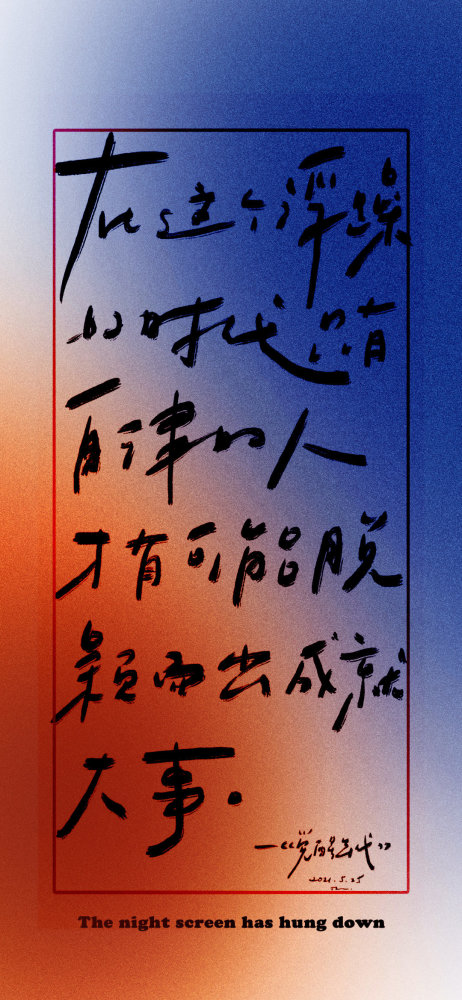 在这个浮躁
的时代只有
自律的人
才有可能脱
颖而出成就
大事.
—《觉醒年代》
2021.5.25
The night screen has hung down